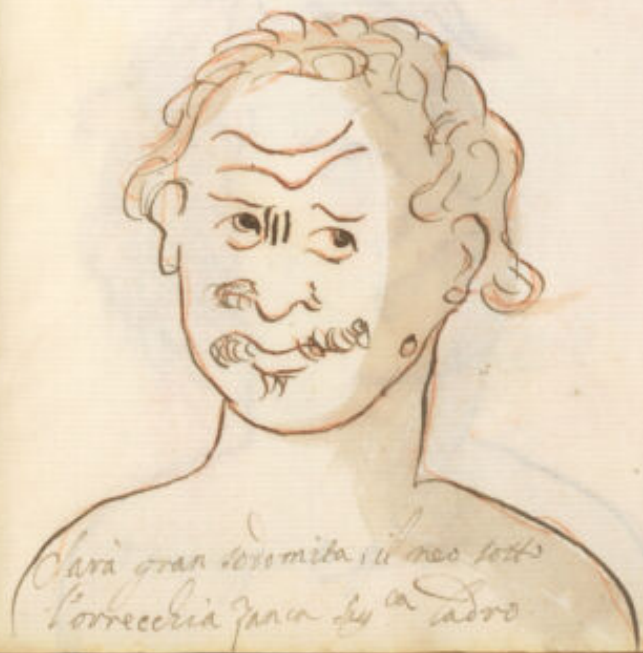 Sarà gran sodomita, il neo sotto
l'orrecchia zanca ladro